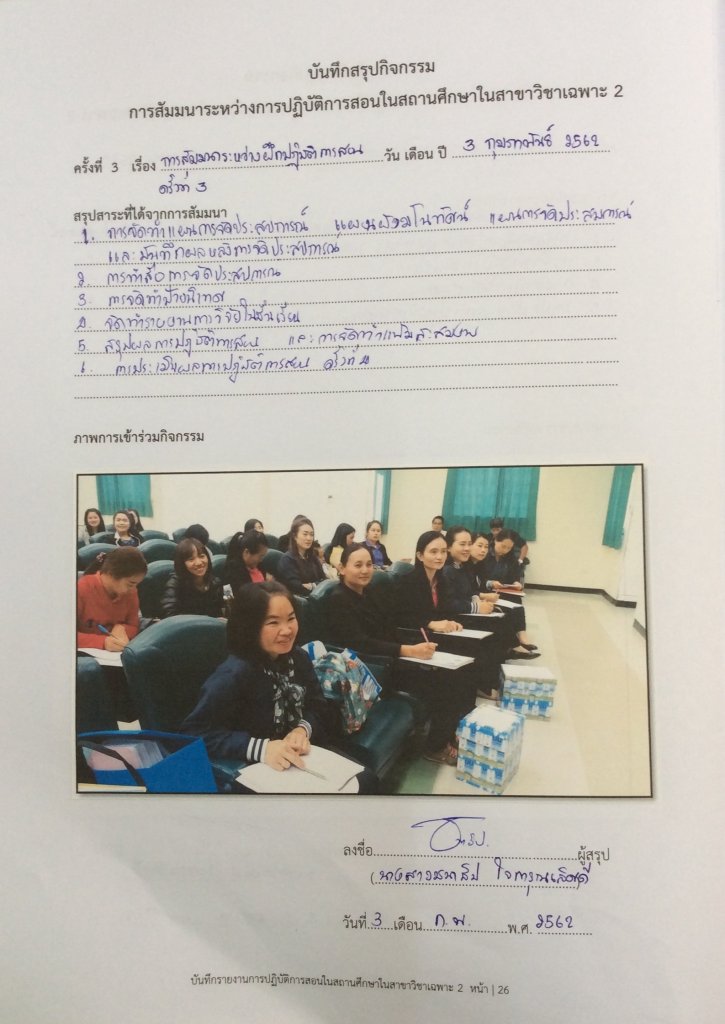 บันทึกสรุปกิจกรรม
การสัมมนาระหว่างการปฏิบัติการสอนในสถานศึกษาในสาขาวิชาเฉพาะ 2
ครั้งที่ 3 เรื่อง การสัมมนาระหว่างฝึกปฏิบัติการสอน วัน เดือน ปี 3 กุมภาพันธ์ 2562
ครั้งที่ 3
สรุปสาระที่ได้จากการสัมมนา
1. การจัดทำแผนการจัดประสบการณ์ แผนผังมโนทัศน์ แผนการจัดประสบการณ์
และบันทึกผลหลังการจัดประสบการณ์
2. การทำสื่อการจัดประสบการณ์
3. การจัดทำป้ายนิเทศ
4. จัดทำรายงานการวิจัยในชั้นเรียน
5. สรุปผลการปฏิบัติการสอน และการจัดทำแฟ้มสะสมงาน
6. การประเมินผลการปฏิบัติการสอน ครั้งที่
ภาพการเข้าร่วมกิจกรรม
ลงชื่อ ผู้สรุป
(นางสาว
วันที่ 3 เดือน ก.พ. พ.ศ. 2562
บันทึกรายงานการปฏิบัติการสอนในสถานศึกษาในสาขาวิชาเฉพาะ 2 หน้า | 26